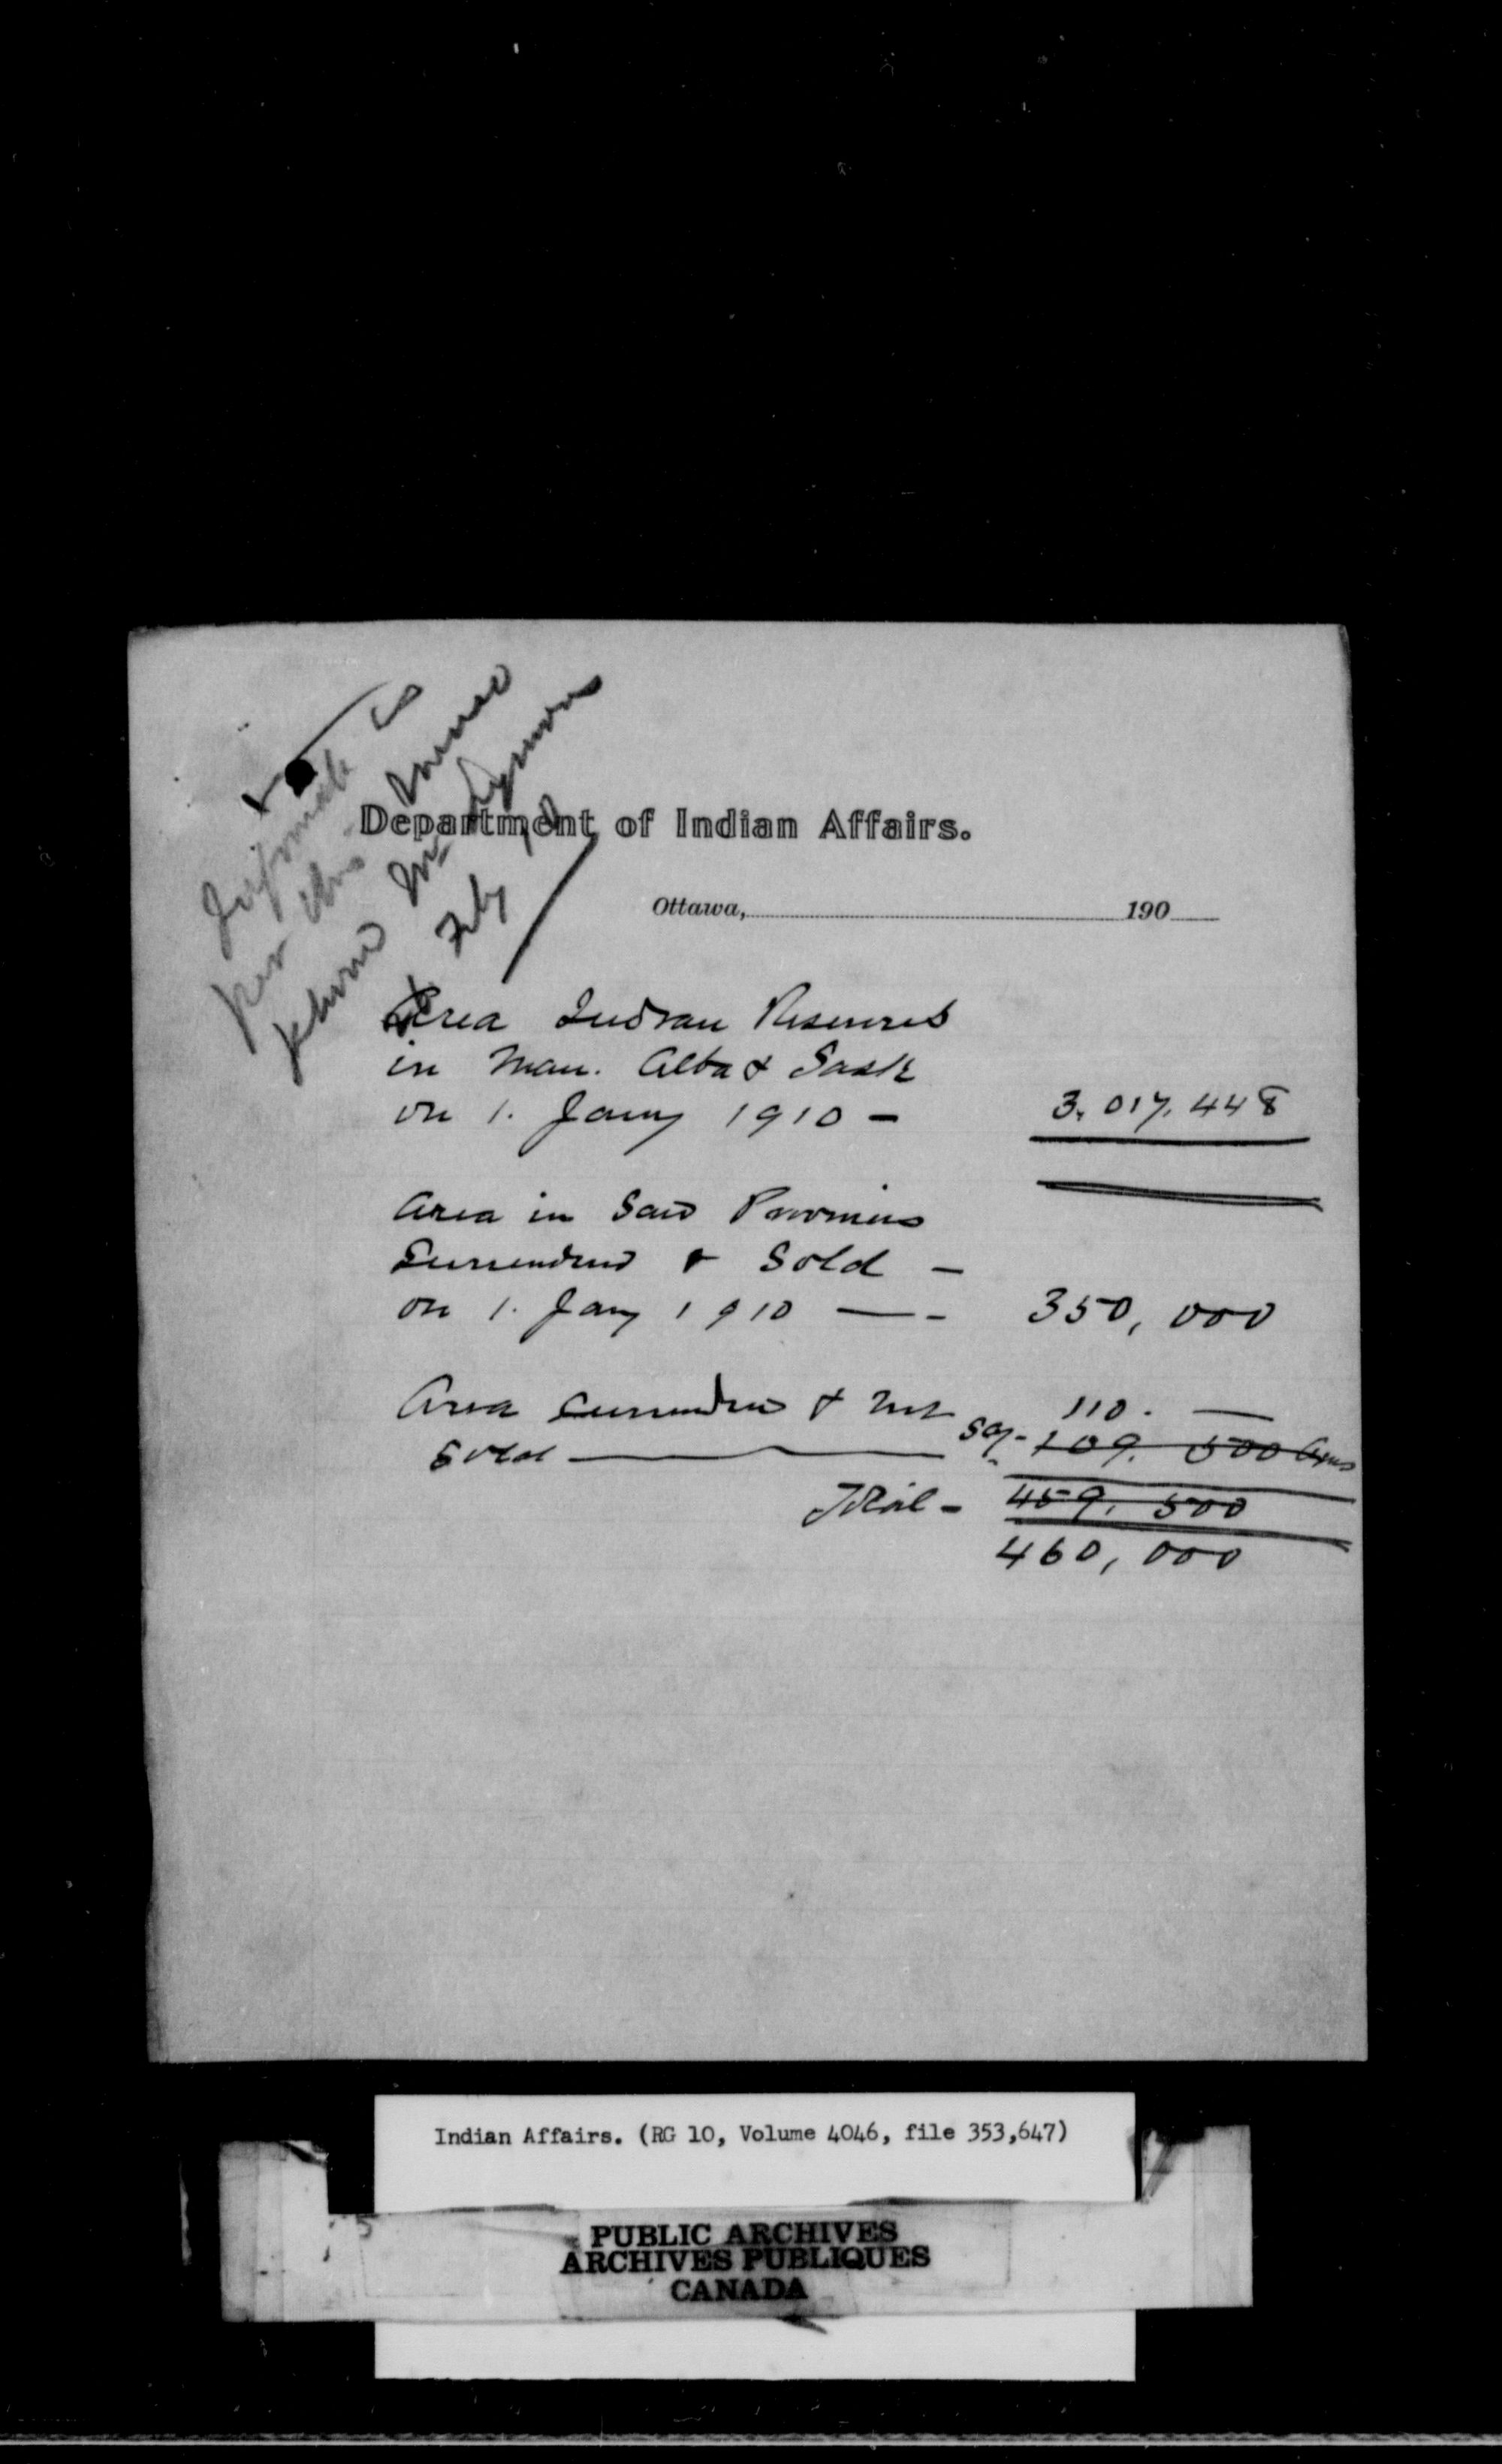 Department of Indian Affairs.
Ottawa, 190
Area Indian Reserves
in Man. Alba & Sask
on 1. Jany 1910 - 3,017,448
Area in Said Provinces
Surrendered & Sold -
on 1. Jany 1910 — - 350,000
Area Surrendered & not 110. —
Sold — say - 109. 500 Acres
Total - 459. 500
460,000
Indian Affairs. (RG 10, Volume 4046, file 353,647)
PUBLIC ARCHIVES
ARCHIVES PUBLIQUES
CANADA